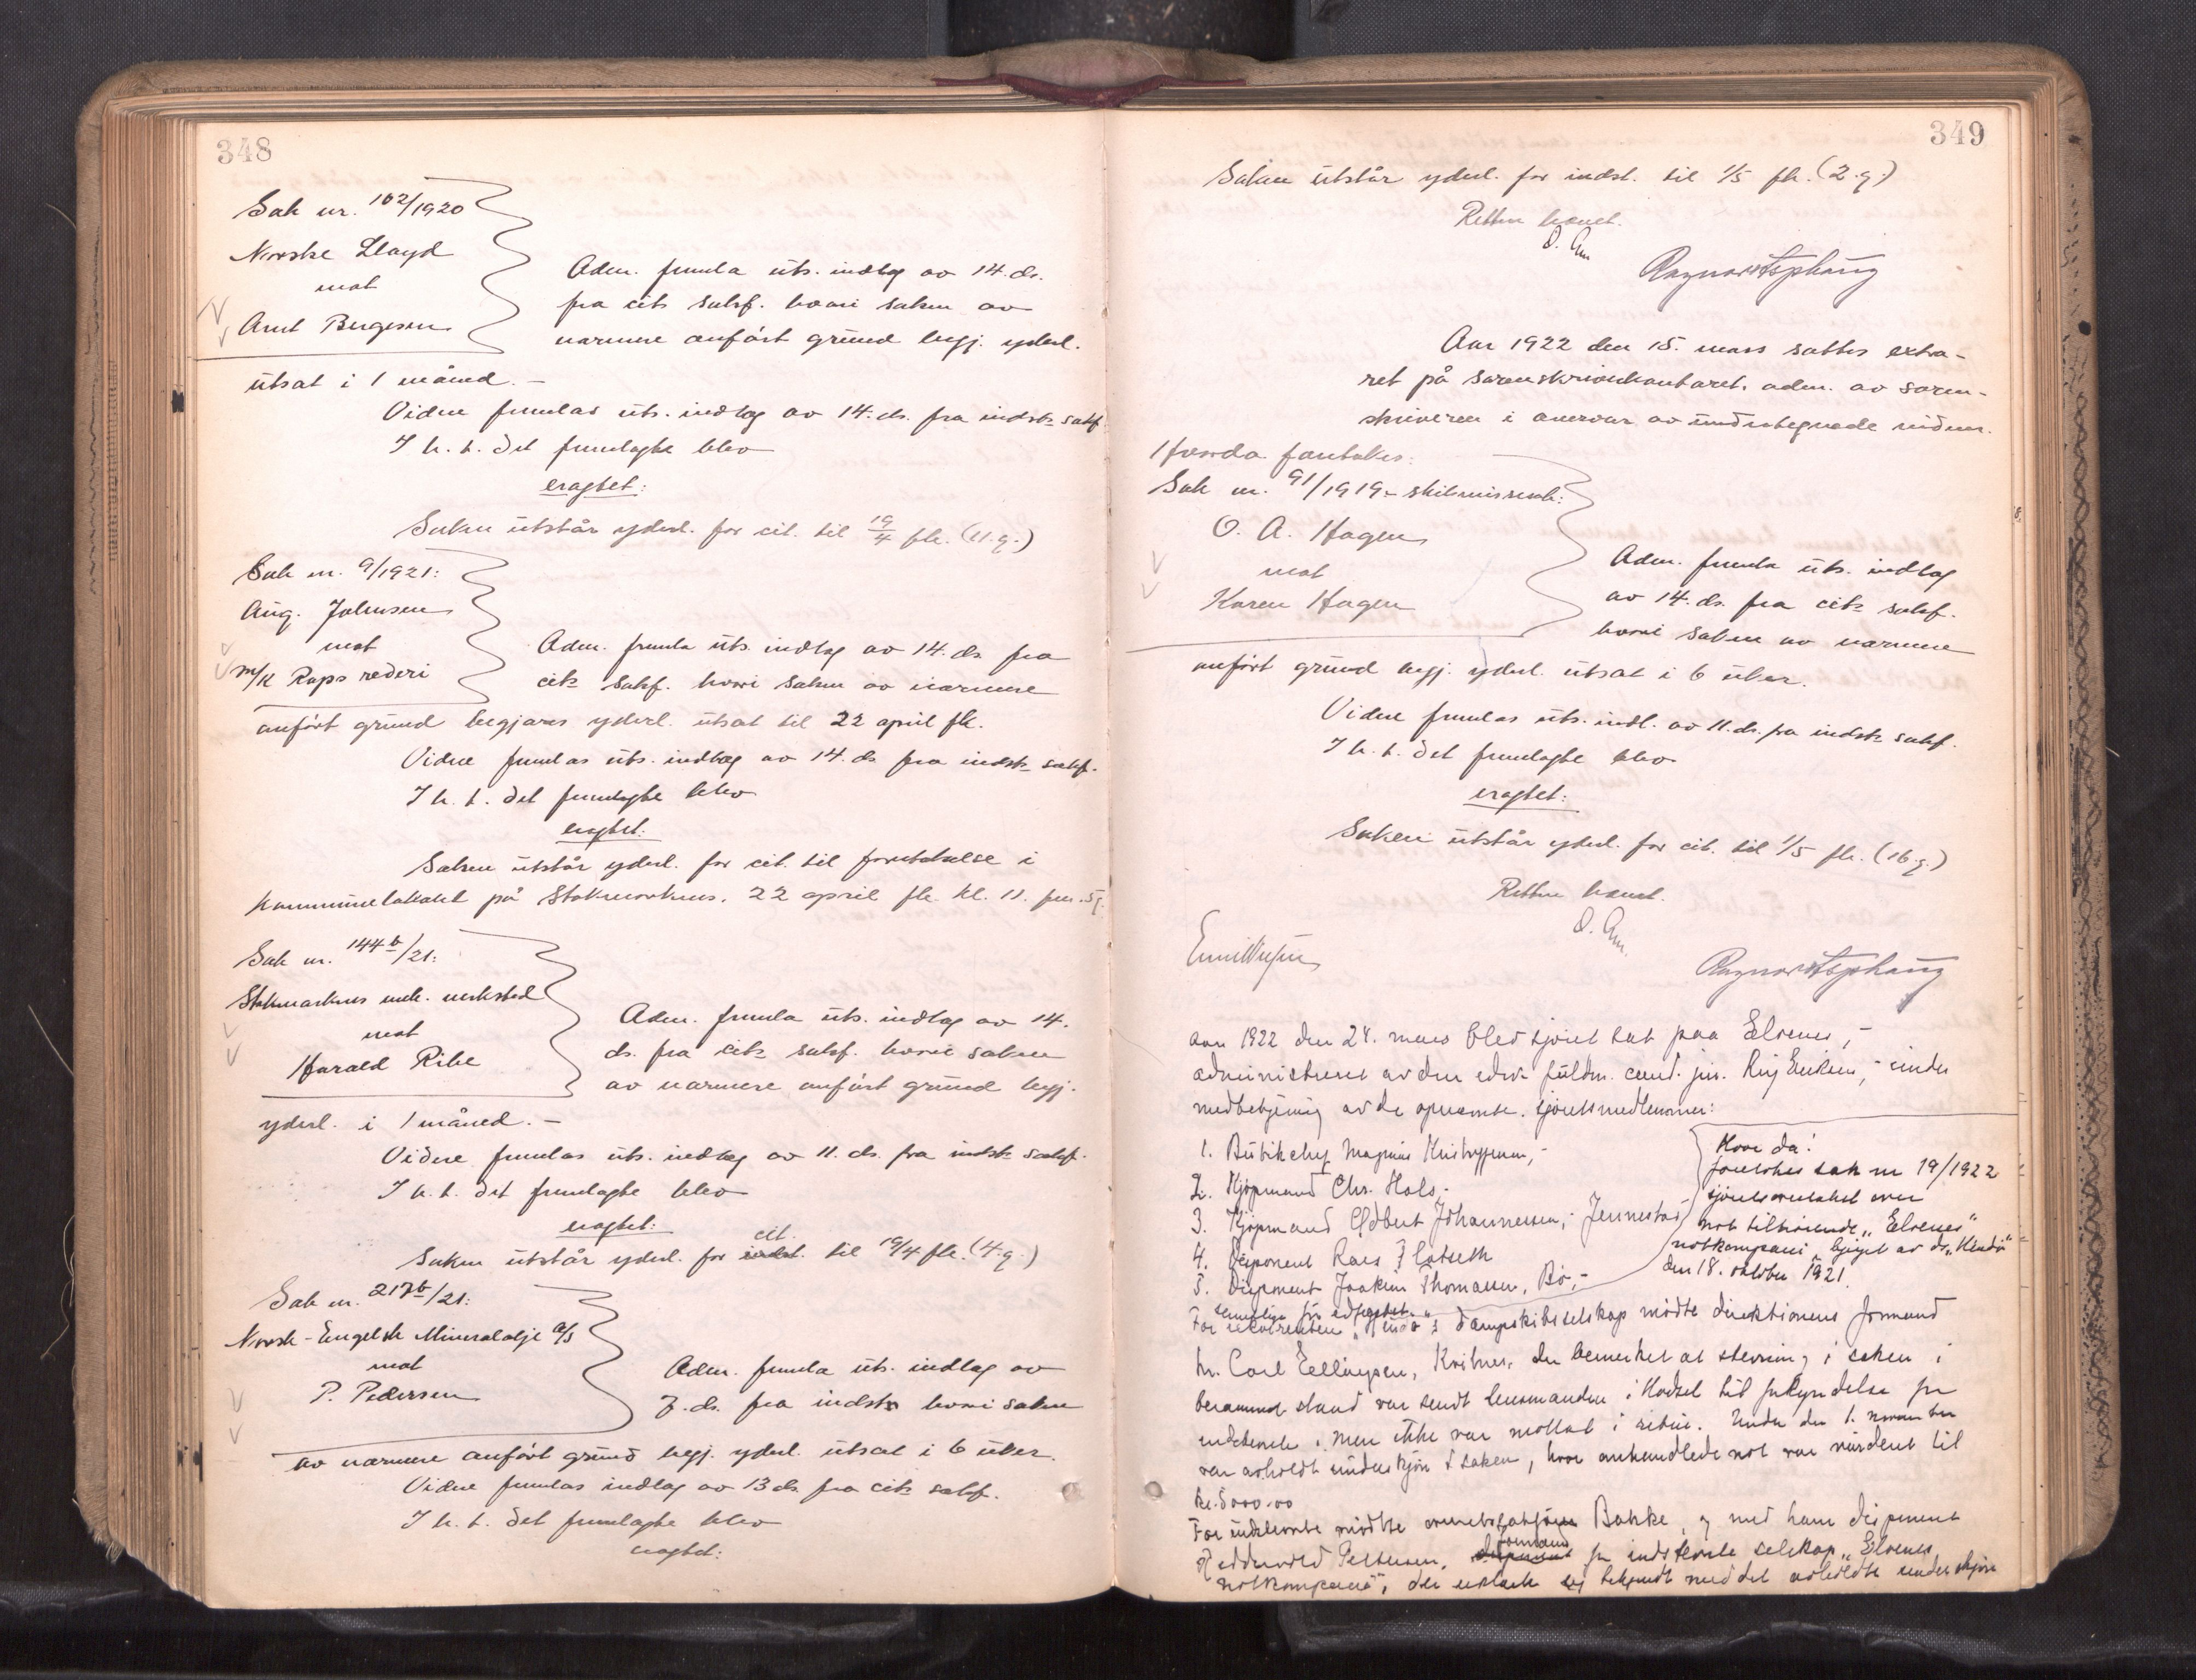 348
Sak nr. 102/1920
Norske Lloyd
mot
Arnt Bergesen
Adm. fremla uts. indlæg av 14. ds.
fra cits sakf. hvori saken av
nærmere anført grund begj. yderl.
utsat i 1 måned. -
Videre fremlas uts. indlæg av 14. ds. fra indsts sakf.
I h. t. det fremlagte blev
eragtet:
Saken utstår yderl. for cit. til 19/4 fk. (11. g.)
Sak nr. 9/1921:
Aug. Johnsen
mot
m/k Raps rederi
Adm. fremla uts. indlæg av 14. ds. fra
cits sakf. hvori saken av nærmere
anført grund begjæres yderl. utsat til 22 april fk.
Videre fremlas uts. indlæg av 14. ds. fra indsts sakf.
I h. t. det fremlagte blev
eragtet:
Saken utstår yderl. for cit. til foretakelse i
kommunelokalet på Stokmarknes. 22 april fk. kl. 11. fm. 5 g.
Sak nr. 144b/21:
Stokmarknes mek. verksted
mot
Harald Ribe
Adm. fremla uts. indlæg av 14.
ds. fra cits sakf. hvori saken
av nærmere anført grund begj.
yderl. i 1 måned. -
Videre fremlas uts. indlæg av 11. ds. fra indsts sakf.
I h. t. det fremlagte blev
eragtet:
cit.
Saken utstår yderl. for indst. til 19/4 fk. (4. g.)
Sak nr. 217b/21:
Norsk-Engelsk Mineralolje a/s
mot
P. Pedersen
Adm. fremla uts. indlæg av
7. ds. fra indsts hvori saken
av nærmere anført grund begj. yderl. utsat i 6 uker.
Videre fremlas indlæg av 13 ds. fra cits sakf.
I h. t. det fremlagte blev
eragtet:
349
Saken utstår yderl. for indst. til 1/5 fk. (2. g.)
Retten hævet.
Aar 1922 den 15. mars sattes extra-
ret på sorenskriverkontoret. adm. av soren-
skriveren i overvær av undertegnede vidner.
Hvorda foretokes:
Sak nr. 91/1919 - skilsmissesak:
O. A. Hagen
mot
Karen Hagen
Adm. fremla uts. indlæg
av 14. ds. fra cits sakf.
hvori saken av nærmere
anført grund begj. yderl. utsat i 6 uker.
Videre fremlas uts. indl. av 11. ds. fra indsts sakf.
I h. t. det fremlagte blev
eragtet:
Saken utstår yderl. for cit. til 1/5 fk. (16. g.)
Retten hævet.
Aar 1922 den 24. mars blev sjøret sat paa Elvenes, -
administreret av den edsv. fuldm. cand. jur. Eriksen, - under
medbetjening av de opnævnte sjøretsmedlemmer:
1. Magnus Kristoffersen, -
2. Kjøpmand Chr. Hals, -
3. Kjøpmand Johannessen, - Jennestad
4. Disponent
5. Disponent Joakim Thomassen, Bø, -
Hvor da!
foretokes sak nr 19/1922
sjøretsoverskjøn over
not tilhørende "Elvenes"
notkompani, av ds. "Hindø"
den 18. oktober 1921.
For rekvirenten "Hindø"s dampskibsselskap mødte direktionens formand
hr. Carl Ellingsen, der bemerket at stevning i saken i
stand var sendt lensmanden i Hadsel til forkyndelse for
indstevnte, men ikke var mottat i retur. Under den 1. november
var avholdt underskjøn i saken, hvor omhandlede not var vurderet til
kr. 5000.00
For indstevnte mødte Bakke, og med ham disponent
Pettersen, formand for indstevnte selskap "Elvenes
notkompani", der erklærte sig bekjendt med det avholdte underskjøn